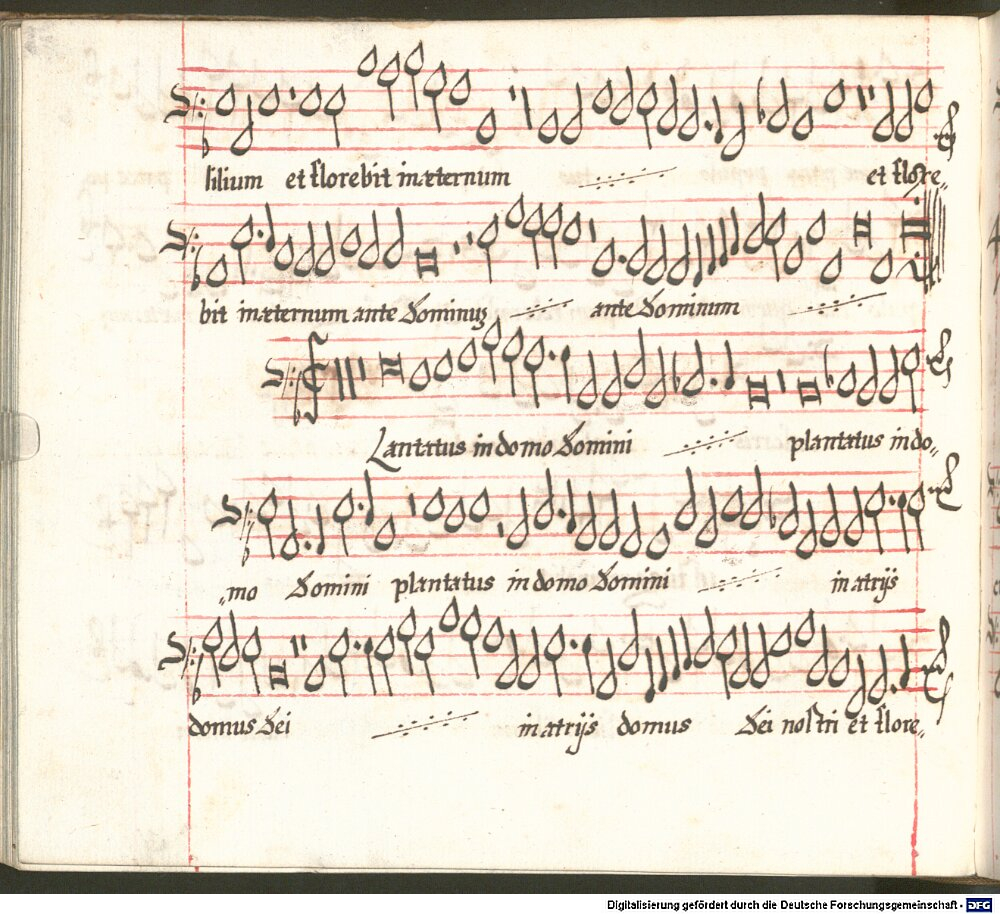 lilium et florebit inæternum et flore„
bit inæternum ante Dominum ante Dominum
Lantatus in domo Domini plantatus in do„
„mo Domini plantatus in domo Domini in atrijs
domus Dei in atrijs domus Dei nostri et flore„
Digitalisierung gefördert durch die Deutsche Forschungsgemeinschaft - DFG